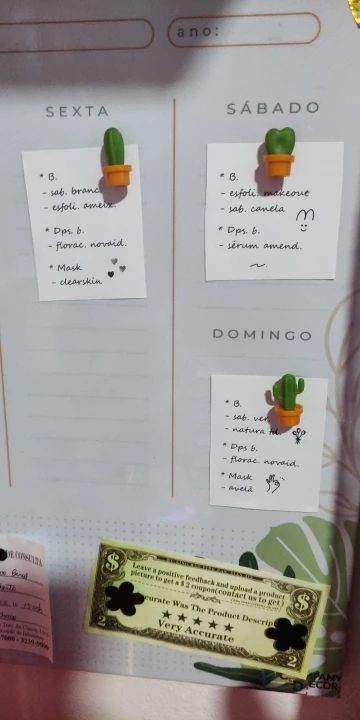 ano:
SEXTA
* B.
- sab. branc
- esfoli. ameix.
* Dps. b.
- florac. novaid.
* Mask
- clearskin
SÁBADO
* B.
- esfoli. makeout
- sab. canela
* Dps. b.
- sérum amend.
DOMINGO
* B.
- sab. ver
- natura
* Dps. b.
- florac. novaid.
* Mask
- avelã
DE CONSULTA
Leave a positive feedback and upload a product
picture to get a $ 2 coupon(contact us to get)
curate Was The Product Descrip
Very Accurate
$
$
2
2